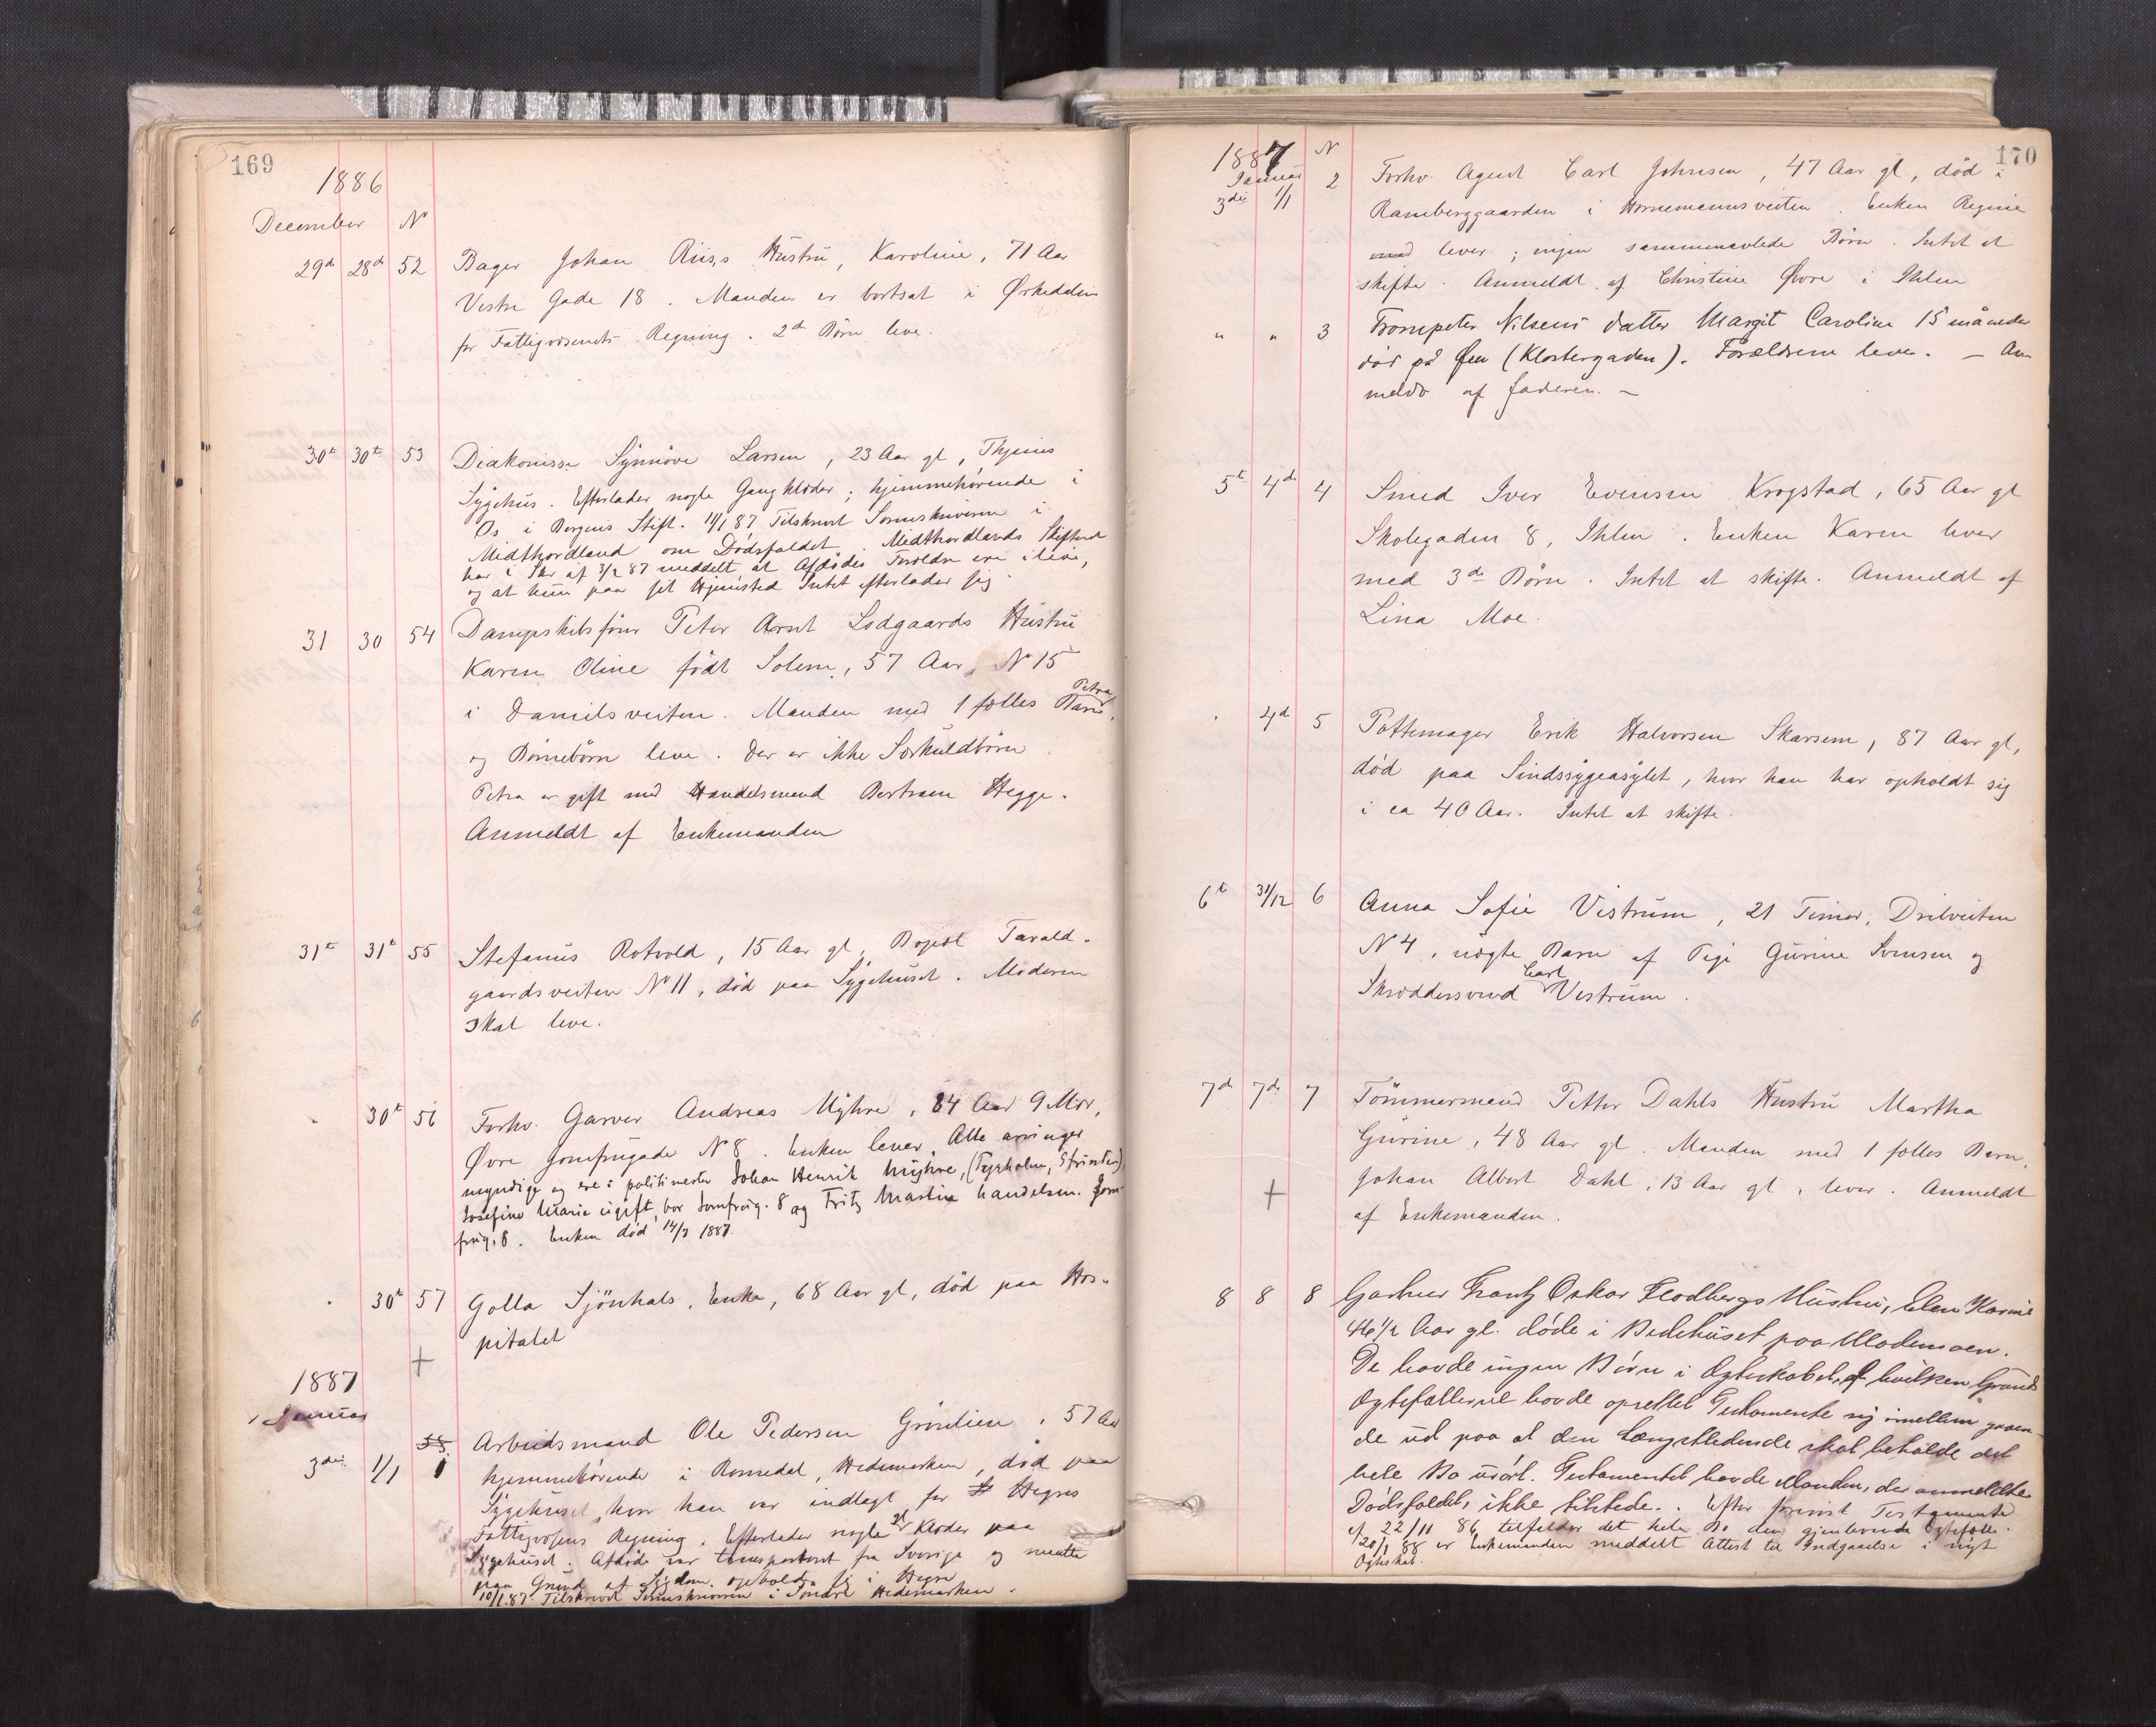 169
1886
December N
29de 28de 52 Bager Johan Riis,s Hustru, Karoline, 71 Aar
Vestre Gade 18. Manden er bortsat i Ørkedalen
for Fattigvæsenets Regning. 2de Børn leve.
30te 30te 53 Diakonisse Synnøve Larsen, 23 Aar gl, Thjems
Sygehus. Efterlader nogle Gangklæder; hjemmehørende i
Os i Bergens Stift. 11/1 87 Tilskrevet Sorenskriveren i
Midthordland om Dødsfaldet. Midthordlands Skifteret
har i Skr af 3/2 87 meddelt at Afdødes Forældre ere ilive,
og at hun paa sit Hjemsted Intet efterlader sig.
31 30 54 Dampskibsfører Peter Arnt Lodgaards Hustru
Karen Oline født Solem, 57 Aar, N 15
i Danielsveiten. Manden med 1 fælles Barn, Petra
og Børnebørn leve. Der er ikke Særkuldbørn.
Petra er gift med Handelsmand Bertram Hegge.
Anmeldt af Enkemanden
31te 31te 55 Stefanus Rotvold, 15 Aar gl, Bopæl Tarald-
gaardsveiten N 11, død paa Sygehuset. Moderen
skal leve.
30te 56 Forhv. Garver Andreas Myhre, 84 Aar 9 Mdr,
Øvre Jomfrugade N 8. Enken lever. Alle arvinger
myndige og ere: politimester Johan Henrik Myhre, (Tyholm, Strinden)
Josefine Marie ugift, bor Jomfrug. 8 og Fritz Martin handelsm. Jom-
frug. 8. Enken død 14/3 1887.
30te 57 Golla Sjønhals, Enke, 68 Aar gl, død paa Hos-
pitalet
1887
Januar
3die 1/1 58 1 Arbeidsmand Ole Pedersen Grønlien, 57 Aar
hjemmehørende i Romedal, Hedemarken, død paa
Sygehuset, hvor han var indlagt for Hegres
Fattigvæsens Regning. Efterlader nogle Klæder paa
Sygehuset. Afdøde var transporteret fra Sverige og maatte
paa Grund af Sygdom opholde sig i Hegre
10/1.87. Tilskrevet Sorenskriveren i Søndre Hedemarken.
170
1887 N
Januar
3die 1/1 2 Forhv. Agent Carl Johnsen, 47 Aar gl, død i
Ramberggaarden i Hornemannsveiten. Enken Regine
med lever; ingen sammenavlede Børn. Intet at
skifte. Anmeldt af Christine Øvre i Ihlen
" " 3 Trompeter Nilsens datter Margit Caroline 15 måneder
død på Øen (Klostergaden). Forældrene lever. — An-
meldt af faderen. —
5te 4de 4 Smed Iver Evensen Krogstad, 65 Aar gl
Skolegaden 8, Ihlen. Enken Karen lever
med 3de Børn. Intet at skifte. Anmeldt af
Lina Moe.
4de 5 Pottemager Erik Halvorsen Skarsem, 87 Aar gl,
død paa Sindssygeasylet, hvor han har opholdt sig
i ca 40 Aar. Intet at skifte.
6te 31/12 6 Anna Sofie Vistrum, 21 Timer, Dreiveiten
N 4, uægte Barn af Pige Gurine Svensen og
Skræddersvend Carl Vistrum.
7de 7de 7 Tømmermand Petter Dahls Hustru Martha
Gurine, 48 Aar gl. Manden med 1 fælles Barn,
Johan Albert Dahl, 13 Aar gl, lever. Anmeldt
af Enkemanden.
8 8 8 Gartner Frantz Oskar Flodbergs Hustru, Elen Karine
46 1/2 Aar gl. døde i Bedehuset paa Modemoen.
De havde ingen Børn i Ægteskabet, af hvilken Grund
Ægtefællerne havde oprettet Testamente sig imellem gaaen-
de ud paa at den Længstlevende skal beholde det
hele Bo udelt. Testamentet havde Manden, der anmeldte
Dødsfaldet, ikke tilstede. Efter forevist Testamente
af 22/11 86 tilfalder det hele Bo den gjenlevende Ægtefælle.
20/1 88 er Enkemanden meddelt Attest til Indgaaelse i nyt
Ægteskab.